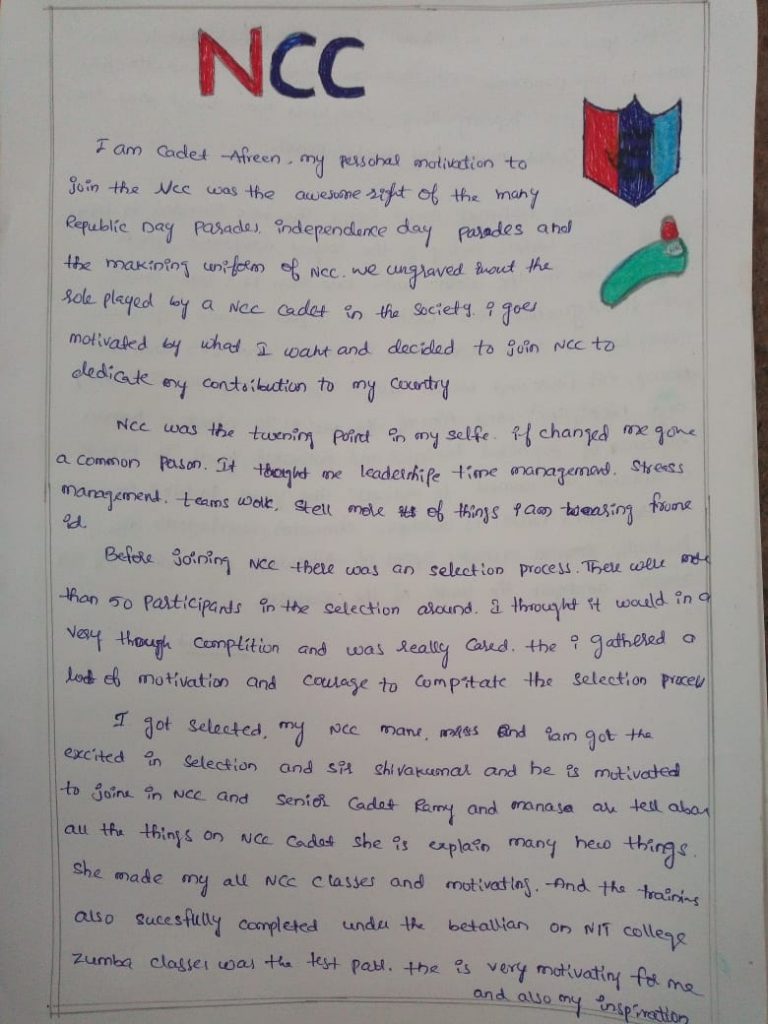 NCC
I am cadet Afreen. my personal motivation to
join the Ncc was the awesome sight of the many
Republic Day parades. independence day parades and
the makining uniform of NCC. we ungraved about the
role played by a NCC cadet in the society. i goes
motivated by what I want and decided to join NCC to
dedicate my contribution to my country
NCC was the turning point in my selfe. if changed me gone
a common pason. It thoght me leadershipe time management. stress
management. teams work, stell more of things i am wearing frome
id.
Before joining NCC there was an selection process. There were more
than 50 participants in the selection around. I throught it would in a
very though complition and was really cared. the i gathered a
lot of motivation and courage to compitate the selection process
I got selected, my NCC mane, miss and iam got the
excited in selection and sir shivakumar and he is motivated
to joine in NCC and senior cadet Ramy and manasa are tell about
all the things on NCC cadet she is explain many new things.
she made my all NCC classes and motivating. And the training
also sucesfully completed under the betallian on NIT college
zumba classes was the test part. the is very motivating for me
and also my inspiration